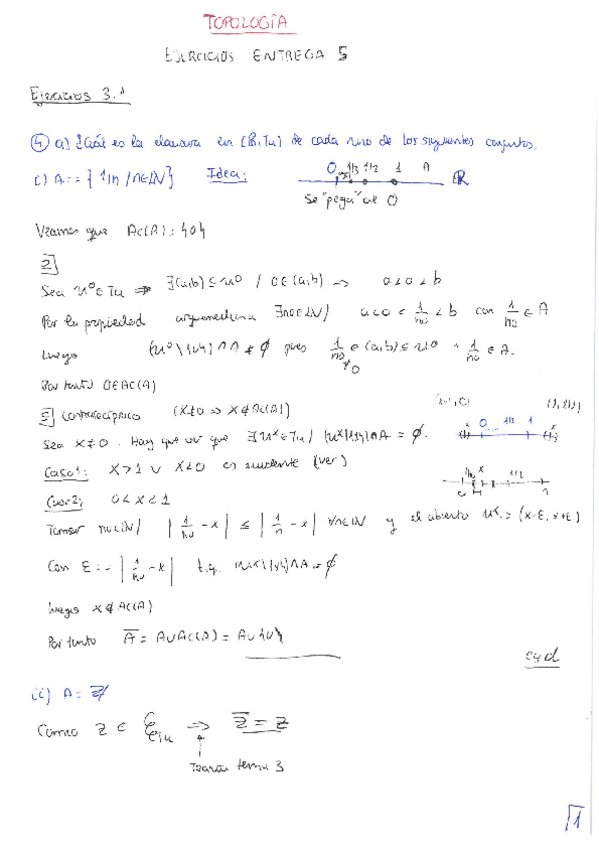 TOPOLOGÍA
EJERCICIOS ENTREGA 5
Ejercicios 3.1
④ a) ¿Cuál es la clausura en (ℝ,Tu) de cada uno de los siguientes conjuntos.
i) A := { 1/n / n∈ℕ } Idea: 0 1/3 1/2 1 A ℝ
Se "pega" al 0
Veamos que Ac(A) = {0}
⊇]
Sea U⁰∈Tu ⇒ ∃(a,b) ⊆ U⁰ / 0∈(a,b) → a<0<b
Por la propiedad arquimediana ∃n₀∈ℕ / a<0< 1/n₀ < b con 1/n₀ ∈ A
Luego (U⁰\{0})∩A ≠ ∅ pues 1/n₀ ∈ (a,b) ⊆ U⁰ y 1/n₀ ∈ A.
≠0
Por tanto 0∈Ac(A)
⊆] Contrarecíproco (x≠0 ⇒ x∉Ac(A))
Sea x≠0. Hay que ver que ∃U^x∈Tu / (U^x\{x})∩A = ∅. 0 1/2 1
Caso 1: x>1 ∨ x<0 es evidente (ver)
Caso 2: 0<x<1
Tomar n₀∈ℕ / |1/n₀ - x| ≤ |1/n - x| ∀n∈ℕ y el abierto U^x := (x-ε, x+ε)
Con ε := |1/n₀ - x| t.q. U^x\{x}∩A = ∅
Luego x∉Ac(A)
Por tanto A̅ = A∪Ac(A) = A∪{0}
cqd
ii) A = ℤ
Como ℤ ∈ 𝒞_Tu ⇒ ℤ̅ = ℤ
tema 3
1